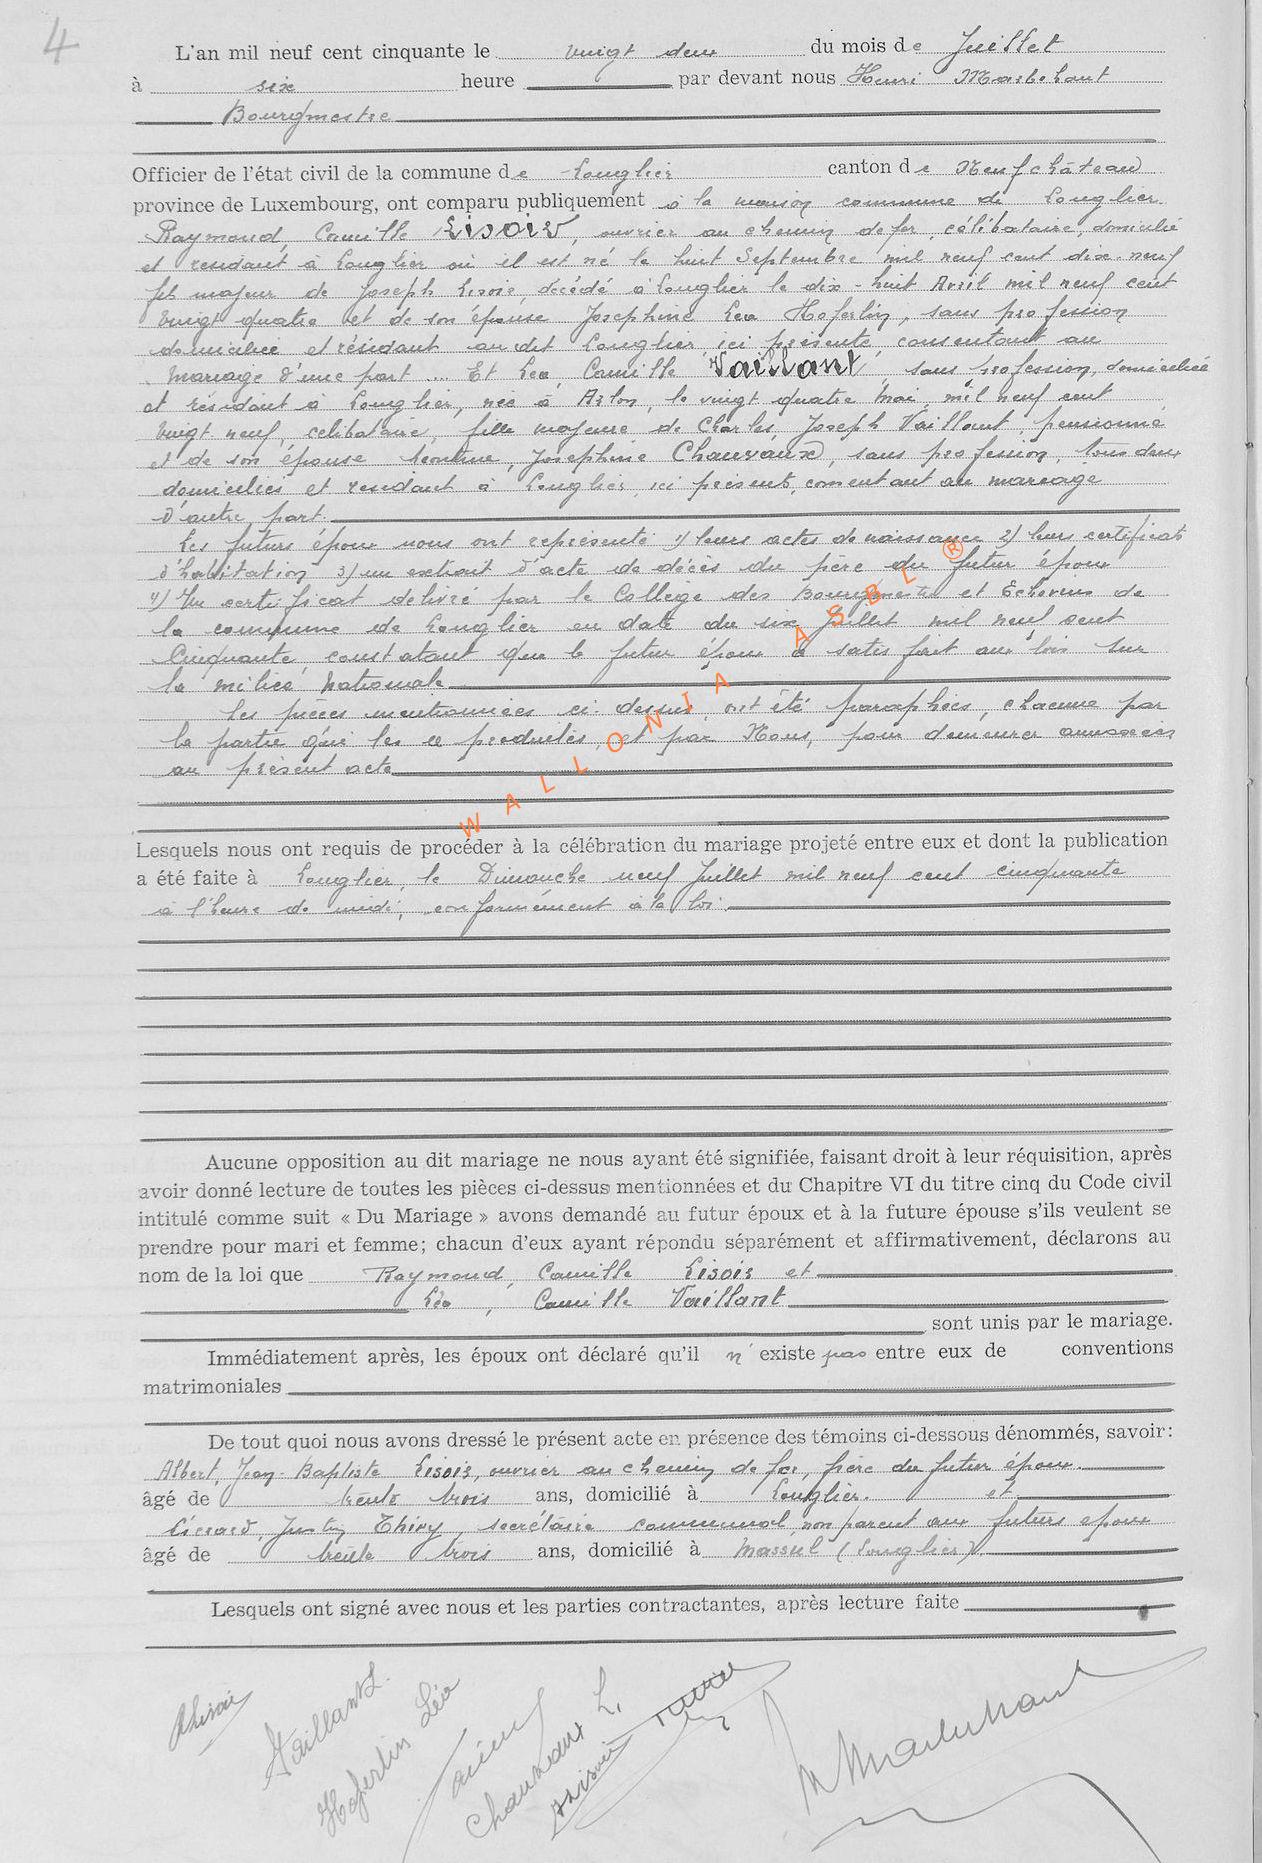 4
L'an mil neuf cent cinquante le vingt deux du mois de Juillet
à six heure par devant nous Henri
Bourgmestre
Officier de l'état civil de la commune de Longlier canton de Neufchâteau
province de Luxembourg, ont comparu publiquement à la maison commune de Longlier
Raymond, Camille Lisoir, ouvrier au chemin de fer, célibataire, domicilié
et résidant à Longlier où il est né le huit Septembre mil neuf cent dix-neuf
fils majeur de Joseph Lisoir, décédé à Longlier le dix-huit Avril mil neuf cent
vingt quatre et de son épouse Joséphine Léa Hoferlin, sans profession
domiciliée et résidant au dit Longlier, ici présente, consentant au
mariage d'une part ... Et Léa, Camille Vaillant, sans profession, domiciliée
et résidant à Longlier, née à Arlon, le vingt quatre Mai mil neuf cent
vingt neuf, célibataire, fille majeure de Charles, Joseph Vaillant, pensionné
et de son épouse Léontine, Joséphine Chauvaux, sans profession, tous deux
domiciliés et résidant à Longlier, ici présents, consentant au mariage
d'autre part.
Les futurs époux nous ont représenté 1) leurs actes de naissance 2) leurs certificats
d'habitation 3) un extrait d'acte de décès du père du futur époux
4) Un certificat délivré par le Collège des Bourgmestre et Echevins de
la commune de Longlier en date du six Juillet mil neuf cent
Cinquante, constatant que le futur époux a satisfait aux lois sur
la milice Nationale
Les pièces mentionnées ci-dessus, ont été paraphées, chacune par
la partie qui les a produites, et par Nous, pour demeurer annexées
au présent acte
WALLONIA ASBL ®
Lesquels nous ont requis de procéder à la célébration du mariage projeté entre eux et dont la publication
a été faite à Longlier, le Dimanche neuf Juillet mil neuf cent cinquante
à l'heure de midi, conformément à la loi.
Aucune opposition au dit mariage ne nous ayant été signifiée, faisant droit à leur réquisition, après
avoir donné lecture de toutes les pièces ci-dessus mentionnées et du Chapitre VI du titre cinq du Code civil
intitulé comme suit « Du Mariage » avons demandé au futur époux et à la future épouse s'ils veulent se
prendre pour mari et femme; chacun d'eux ayant répondu séparément et affirmativement, déclarons au
nom de la loi que Raymond, Camille Lisoir et
Léa, Camille Vaillant
sont unis par le mariage.
Immédiatement après, les époux ont déclaré qu'il n'existe pas entre eux de conventions
matrimoniales
De tout quoi nous avons dressé le présent acte en présence des témoins ci-dessous dénommés, savoir:
Albert, Jean-Baptiste Lisoir, ouvrier au chemin de fer, frère du futur époux.
âgé de trente trois ans, domicilié à Longlier. et
Justin Thiry, secrétaire communal, non parent aux futurs époux
âgé de trente trois ans, domicilié à Massul (Longlier).
Lesquels ont signé avec nous et les parties contractantes, après lecture faite
Vaillant L.
Hoferlin Léa
Chauvaux L.